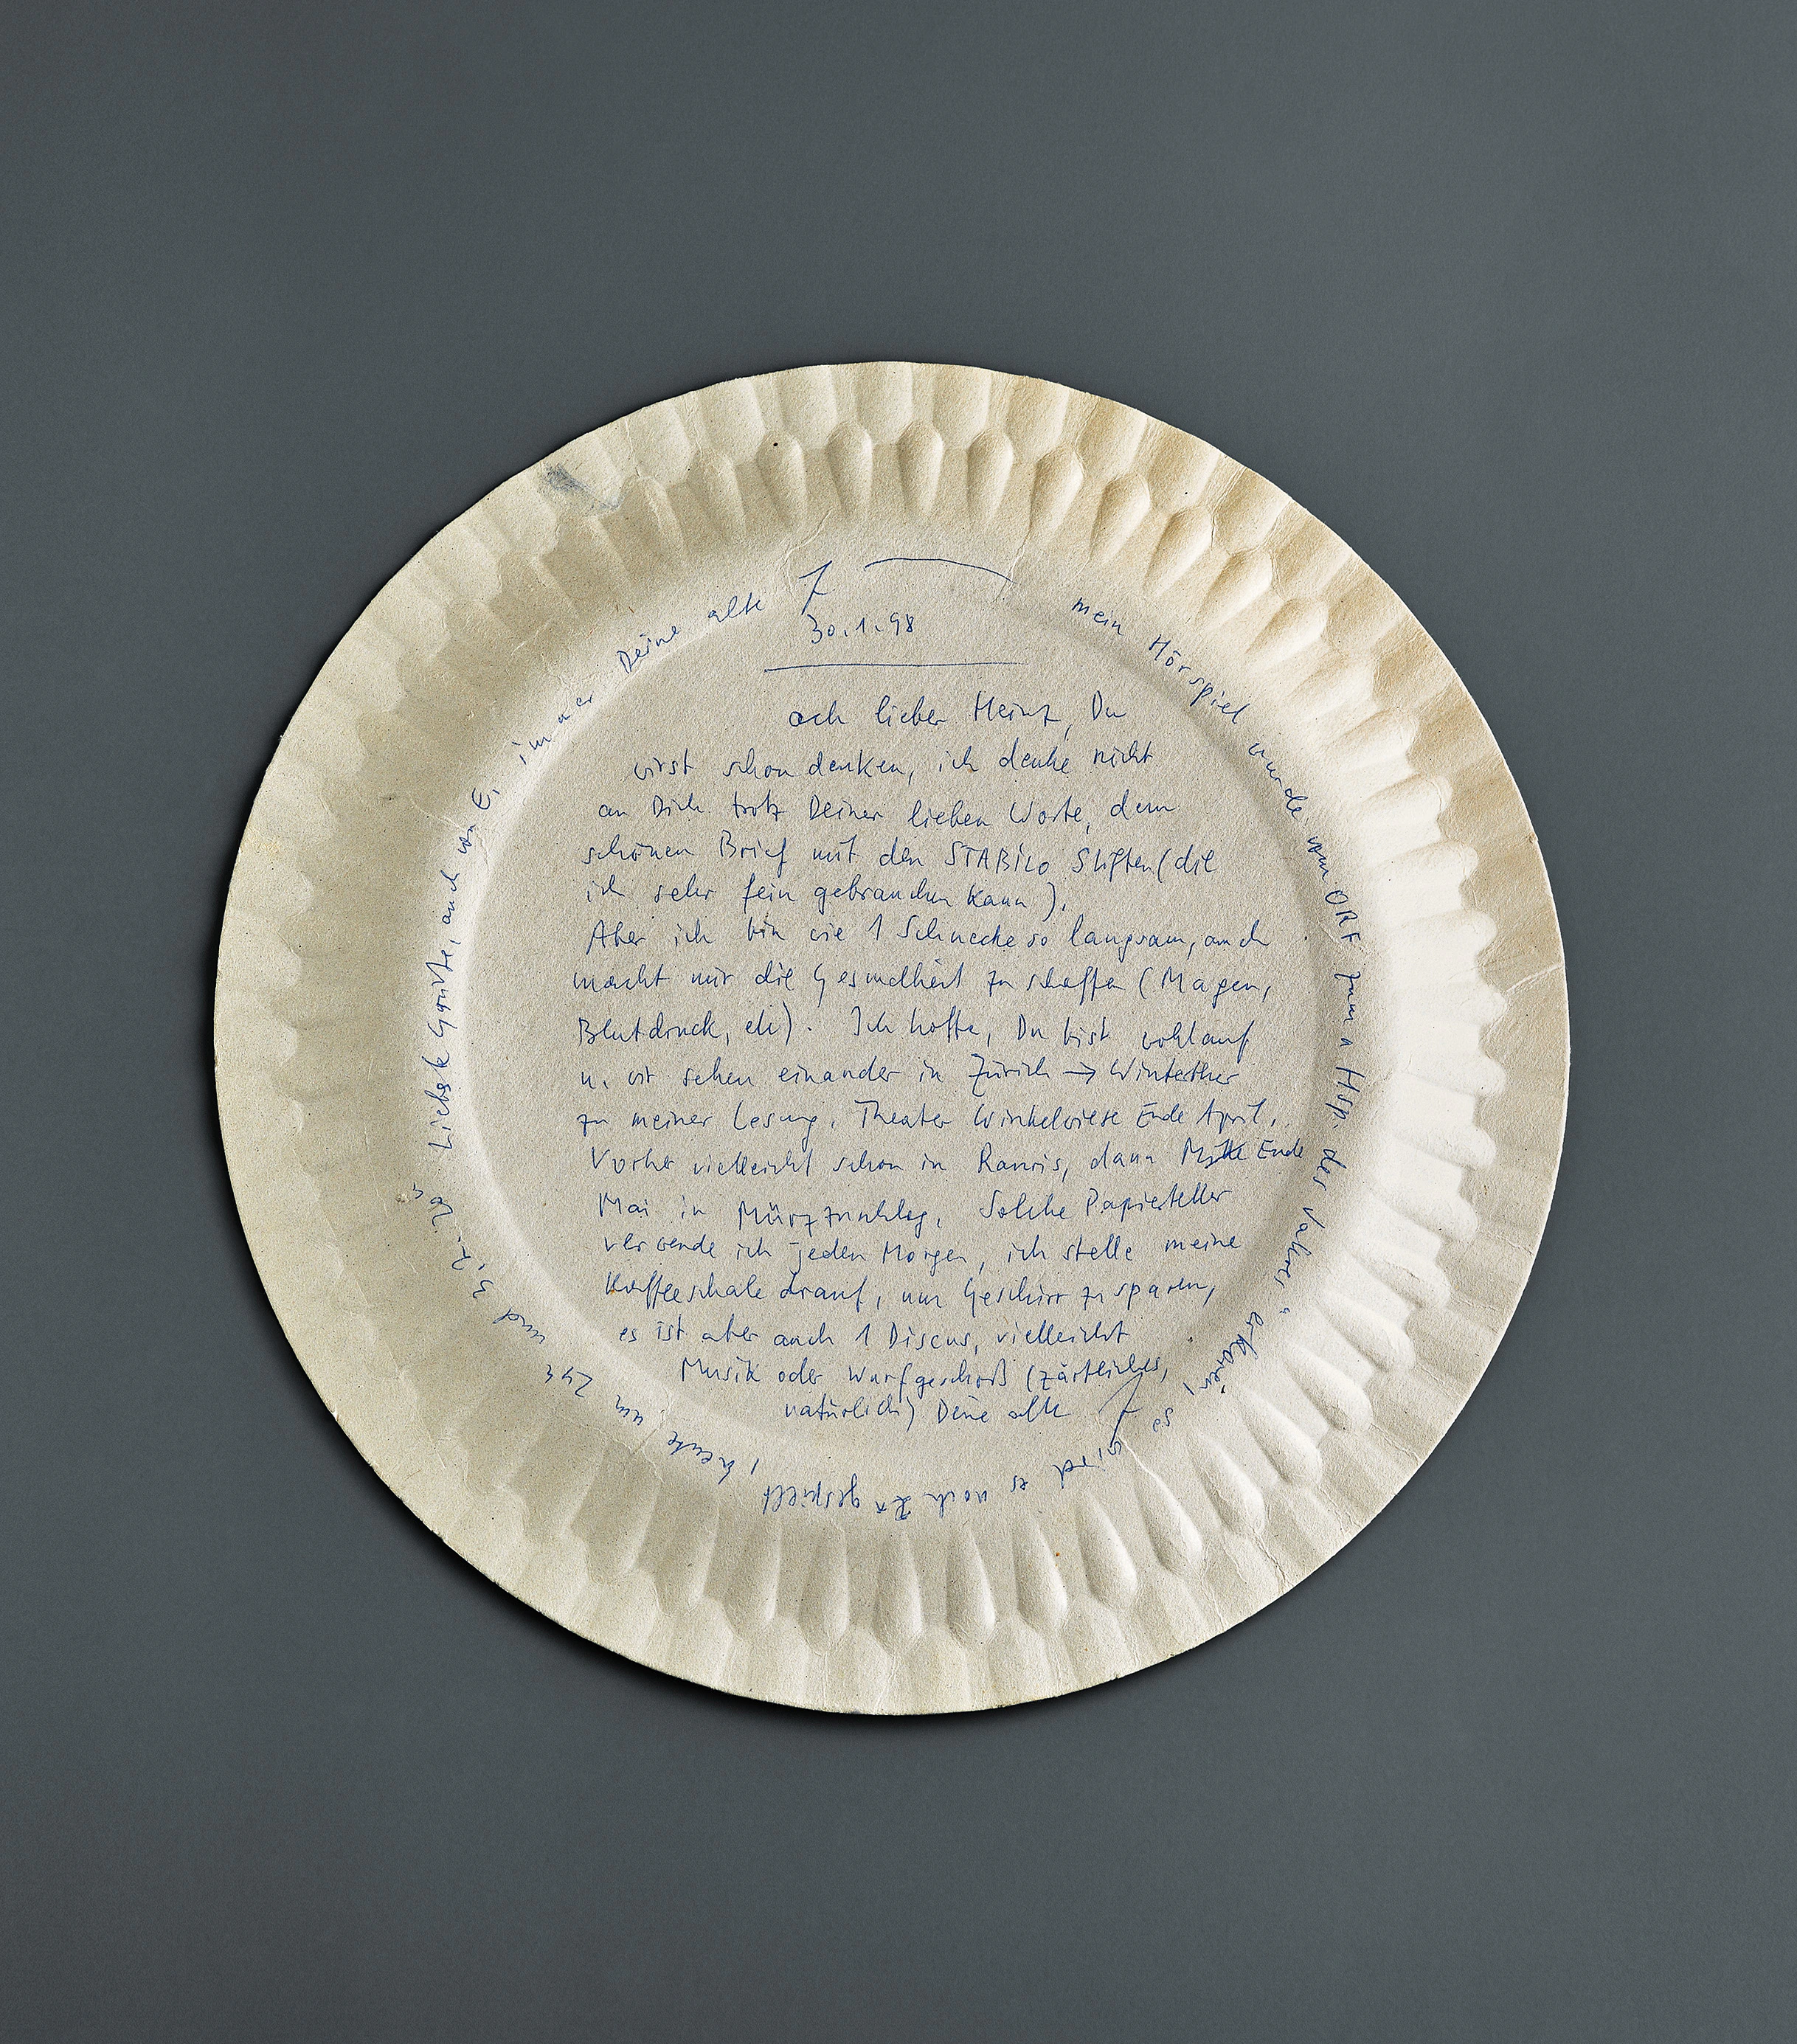 30.1.98
ach lieber Heinz, Du
wirst schon denken, ich denke nicht
an Dich trotz Deiner lieben Worte, dem
schönen Brief mit den STABILO Stiften (die
ich sehr fein gebrauchen kann).
Aber ich bin wie 1 Schnecke so langsam, auch
macht mir die Gesundheit zu schaffen (Magen,
Blutdruck, etc). Ich hoffe, Du bist wohlauf
u. wir sehen einander in Zürich → Winterthur
zu meiner Lesung, Theater Winkelwiese Ende April,
Vorher vielleicht schon in Rauris, dann Mitte Ende
Mai in Mürzzuschlag, Solche Papierteller
verwende ich jeden Morgen, ich stelle meine
Kaffeeschale drauf, um Geschirr zu sparen,
es ist aber auch 1 Discus, vielleicht
Musik oder Wurfgeschoß (zärtliches,
natürlich) Deine alte
mein Hörspiel wurde vom ORF zum " Hsp. des Jahres " erkoren, es wird es noch 2x gespielt, heute um und 3.2. 20" Liebste Grüße, auch von E, immer Deine alte